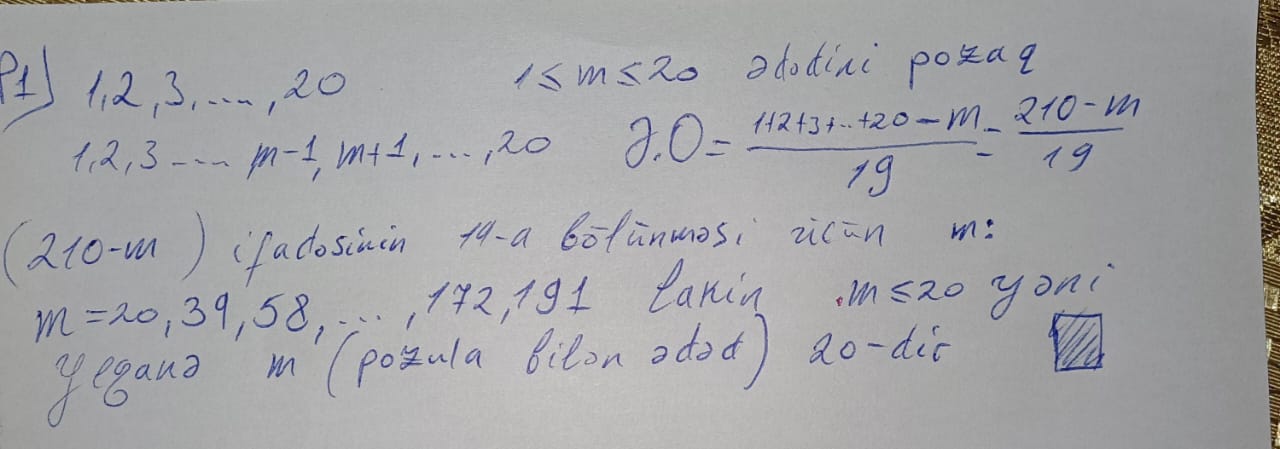 P1) 1,2,3,....,20 1≤m≤20 ədədini pozaq
1,2,3 ---- m-1, m+1, ...,20 Ə.O = \frac{1+2+3+..+20-m}{19} = \frac{210-m}{19}
(210-m) ifadəsinin 19-a bölünməsi üçün m:
m=20,39,58,...,172,191 lakin m≤20 yəni
yeganə m (pozula bilən ədəd) 20-dir